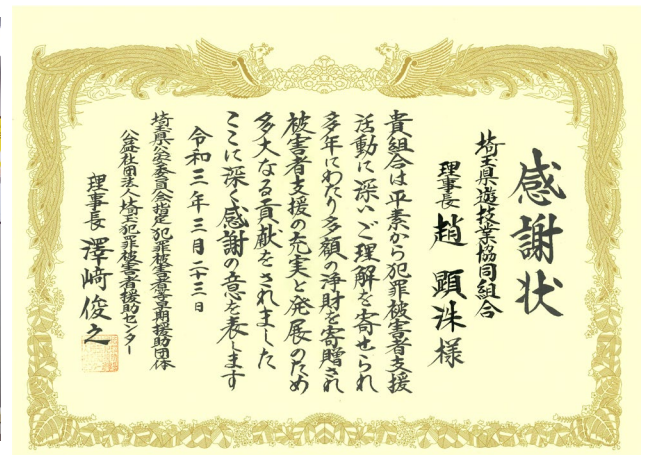 感謝状
埼玉県遊技業協同組合
理事長 趙顕洙様
貴組合は平素から犯罪被害者支援
活動に深いご理解を寄せられ
多年にわたり多額の浄財を寄贈され
被害者支援の充実と発展のため
多大なる貢献をされました
ここに深く感謝の意を表します
令和三年三月二十三日
埼玉県公安委員会指定犯罪被害者等早期援助団体
公益社団法人埼玉犯罪被害者援助センター
理事長 澤﨑俊之